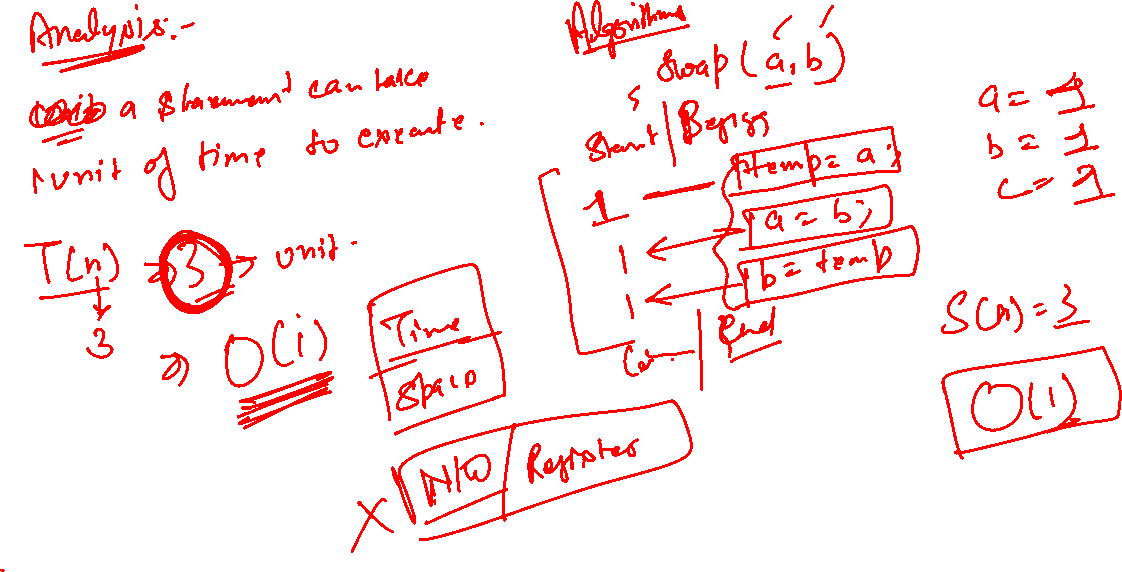 Analysis:-
a statement can take
1 unit of time to execute.
T(n) → 3 → unit.
3
⇒ O(1)
Time
Space
N/W / Register
Algorithms
Swap (a, b)
Start / Begin
1 temp = a;
1 a = b;
1 b = temp
End
a = 1
b = 1
c = 1
S(n) = 3
O(1)